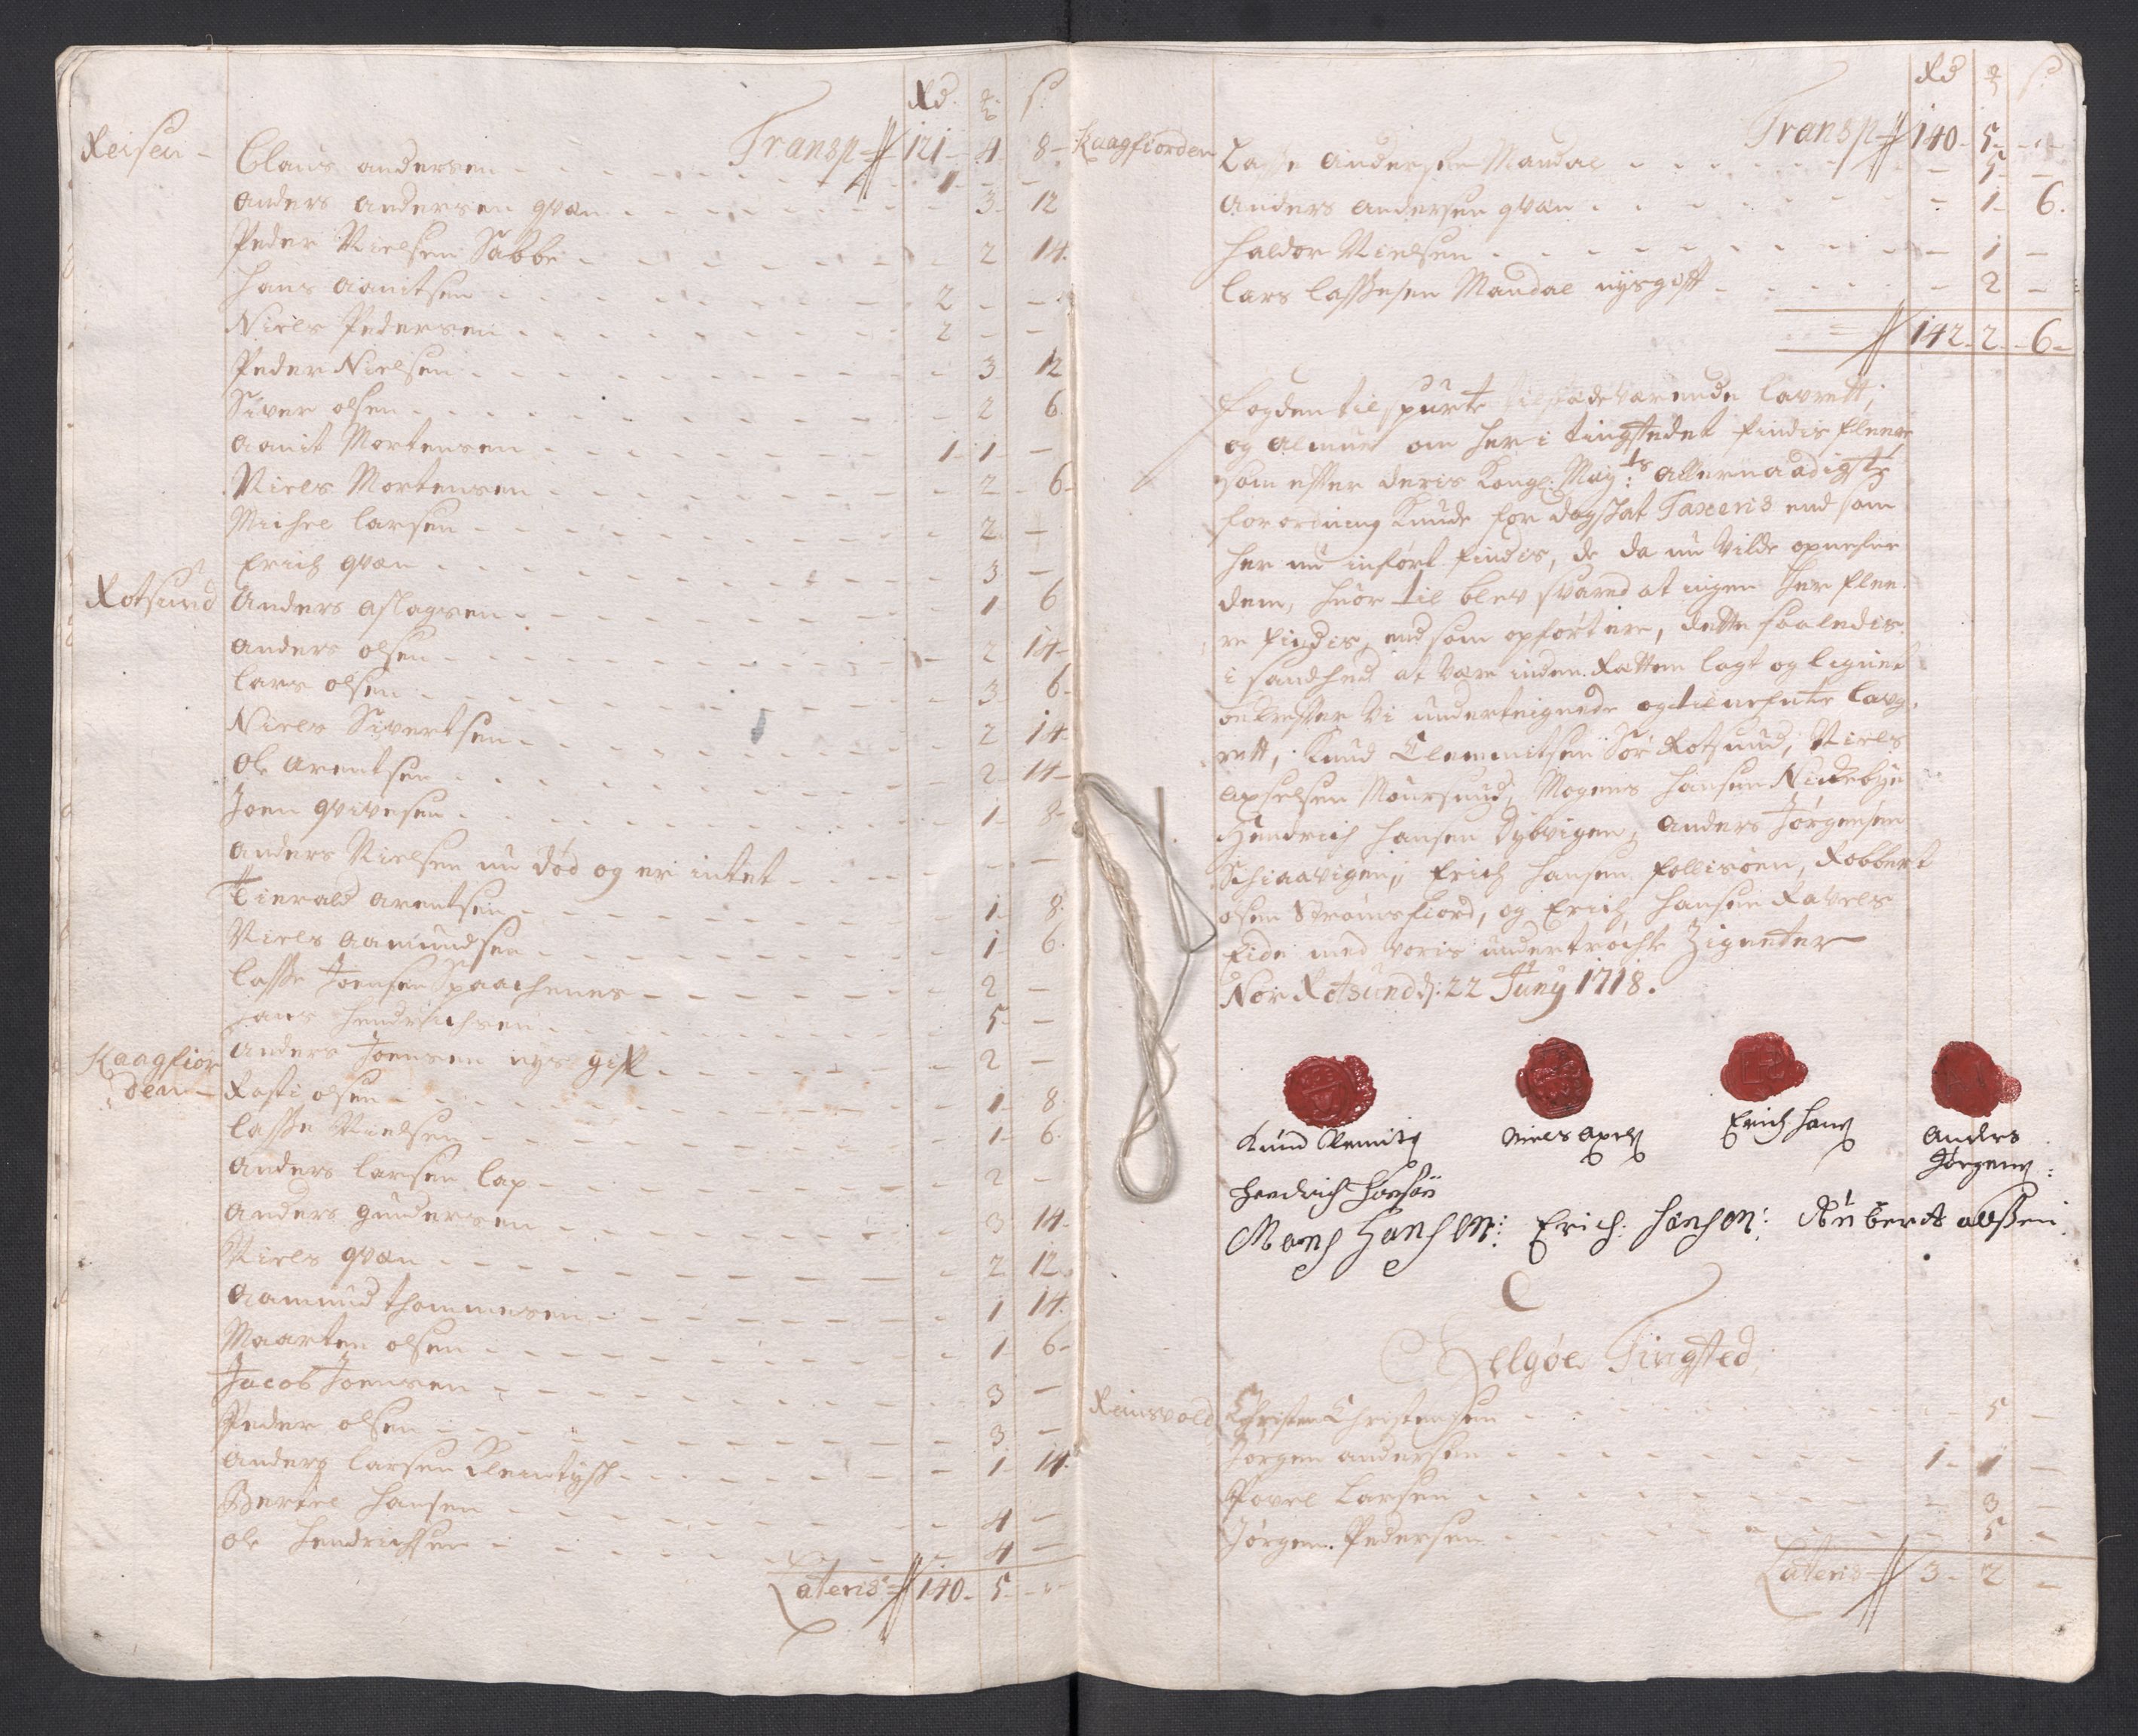 Rd. ₰ s.
Transp 121 - 4 8 -
Reisen - Claus andersen - 1 - -
Anders andersen qvæn - 3 - 12
Peder Nielsen Sabbe - 2 14.
Hans aanitsen - 2 - -
Niels Pedersen - 2 - -
Peder Nielsen - 3 12
Siver olsen - 2 6.
Aanit Mortensen - 1 - 1 -
Niels Mortensen - 2 - 6 -
Michel larsen - 2 -
Erich qvæn - 3 -
Rotsund Anders aslagsen - 1 6
Anders olsen - 2 14 -
Lars olsen - 3 6 -
Niels Sivertsen - 2 14 -
Ole arentsen - 2 - 14 -
Joen qvivesen - 1 - 8 -
Anders Nielsen nu død og er intet - -
Tierald arentsen - 1 8.
Niels aamundsen - 1 6.
Lasse Joensen Spaachenes - 2 -
Hans Hendrichsen - 5 -
Kaagfior Anders Joensen nys gift - 2 -
den - Rasti olsen - 1 8.
Lasse Nielsen - 1 - 6.
Anders larsen lap - 2 -
Anders gundersen - 3 14 -
Niels qvæn - 2 12.
Aamund thommesen - 1 14.
Maarten olsen - 1 6 -
Jacob Joensen - 3 -
Peder olsen - 3 -
Anders larsen - 1 - 14.
Bertel Hansen - 4 -
Ole Hendrichsen - 4 -
Lateris 140 - 5 - -
Rd ₰ s.
Transp 140 - 5 - -
Kaagfiorden Lasse andersen Mandal - 5 -
Anders andersen qvæn - 1 - 6.
Haldor Nielsen - 1 -
Lars lassesen Mandal nysgift - 2 -
142 - 2 - 6 -
Fogden tilspurte tilstædeværende lavrett,
og almue om her i tingstedet findis fleere
som efter deris Kongl: May:ts allernaadigste
forordning kunde for dagskat Taxeris end som
her nu inført findis, de da nu vilde opnefne
dem, huor til blev svared at ingen her flee
re findis, end som opført ere, dette saaledis
i sandhed at være inden Retten lagt og lignet
bekrefter vi undertegnede og tilnefnte laug
rett, Knud Clemmitsen Sør Rotsund, Niels
Apselsen Maursund, Mogens Hansen Nickebye
Hendrich Hansen Dybvigen, Anders Jørgensen
Schiaavigen, Erich Hansen Follisøen, Robbert
olsen Strømsfiord, og Erich Hansen Ravels
Eide med voris undertrøchte Zigneter
Nor Rotsund d: 22 Juny 1718.
Knud Clemits Niels Apels Erich Hans Anders
Jørgens:
Hendrich Hansøn
Mons Hanson: Erich: Hanson: Rubert olsen
Helgøe Tingsted
Reinsvold Christen Christensen - 5 -
Jørgen andersen - 1 - 1 -
Povel Larsen - 3 -
Jørgen Pedersen - 5 -
Lateris 3 - 2 -